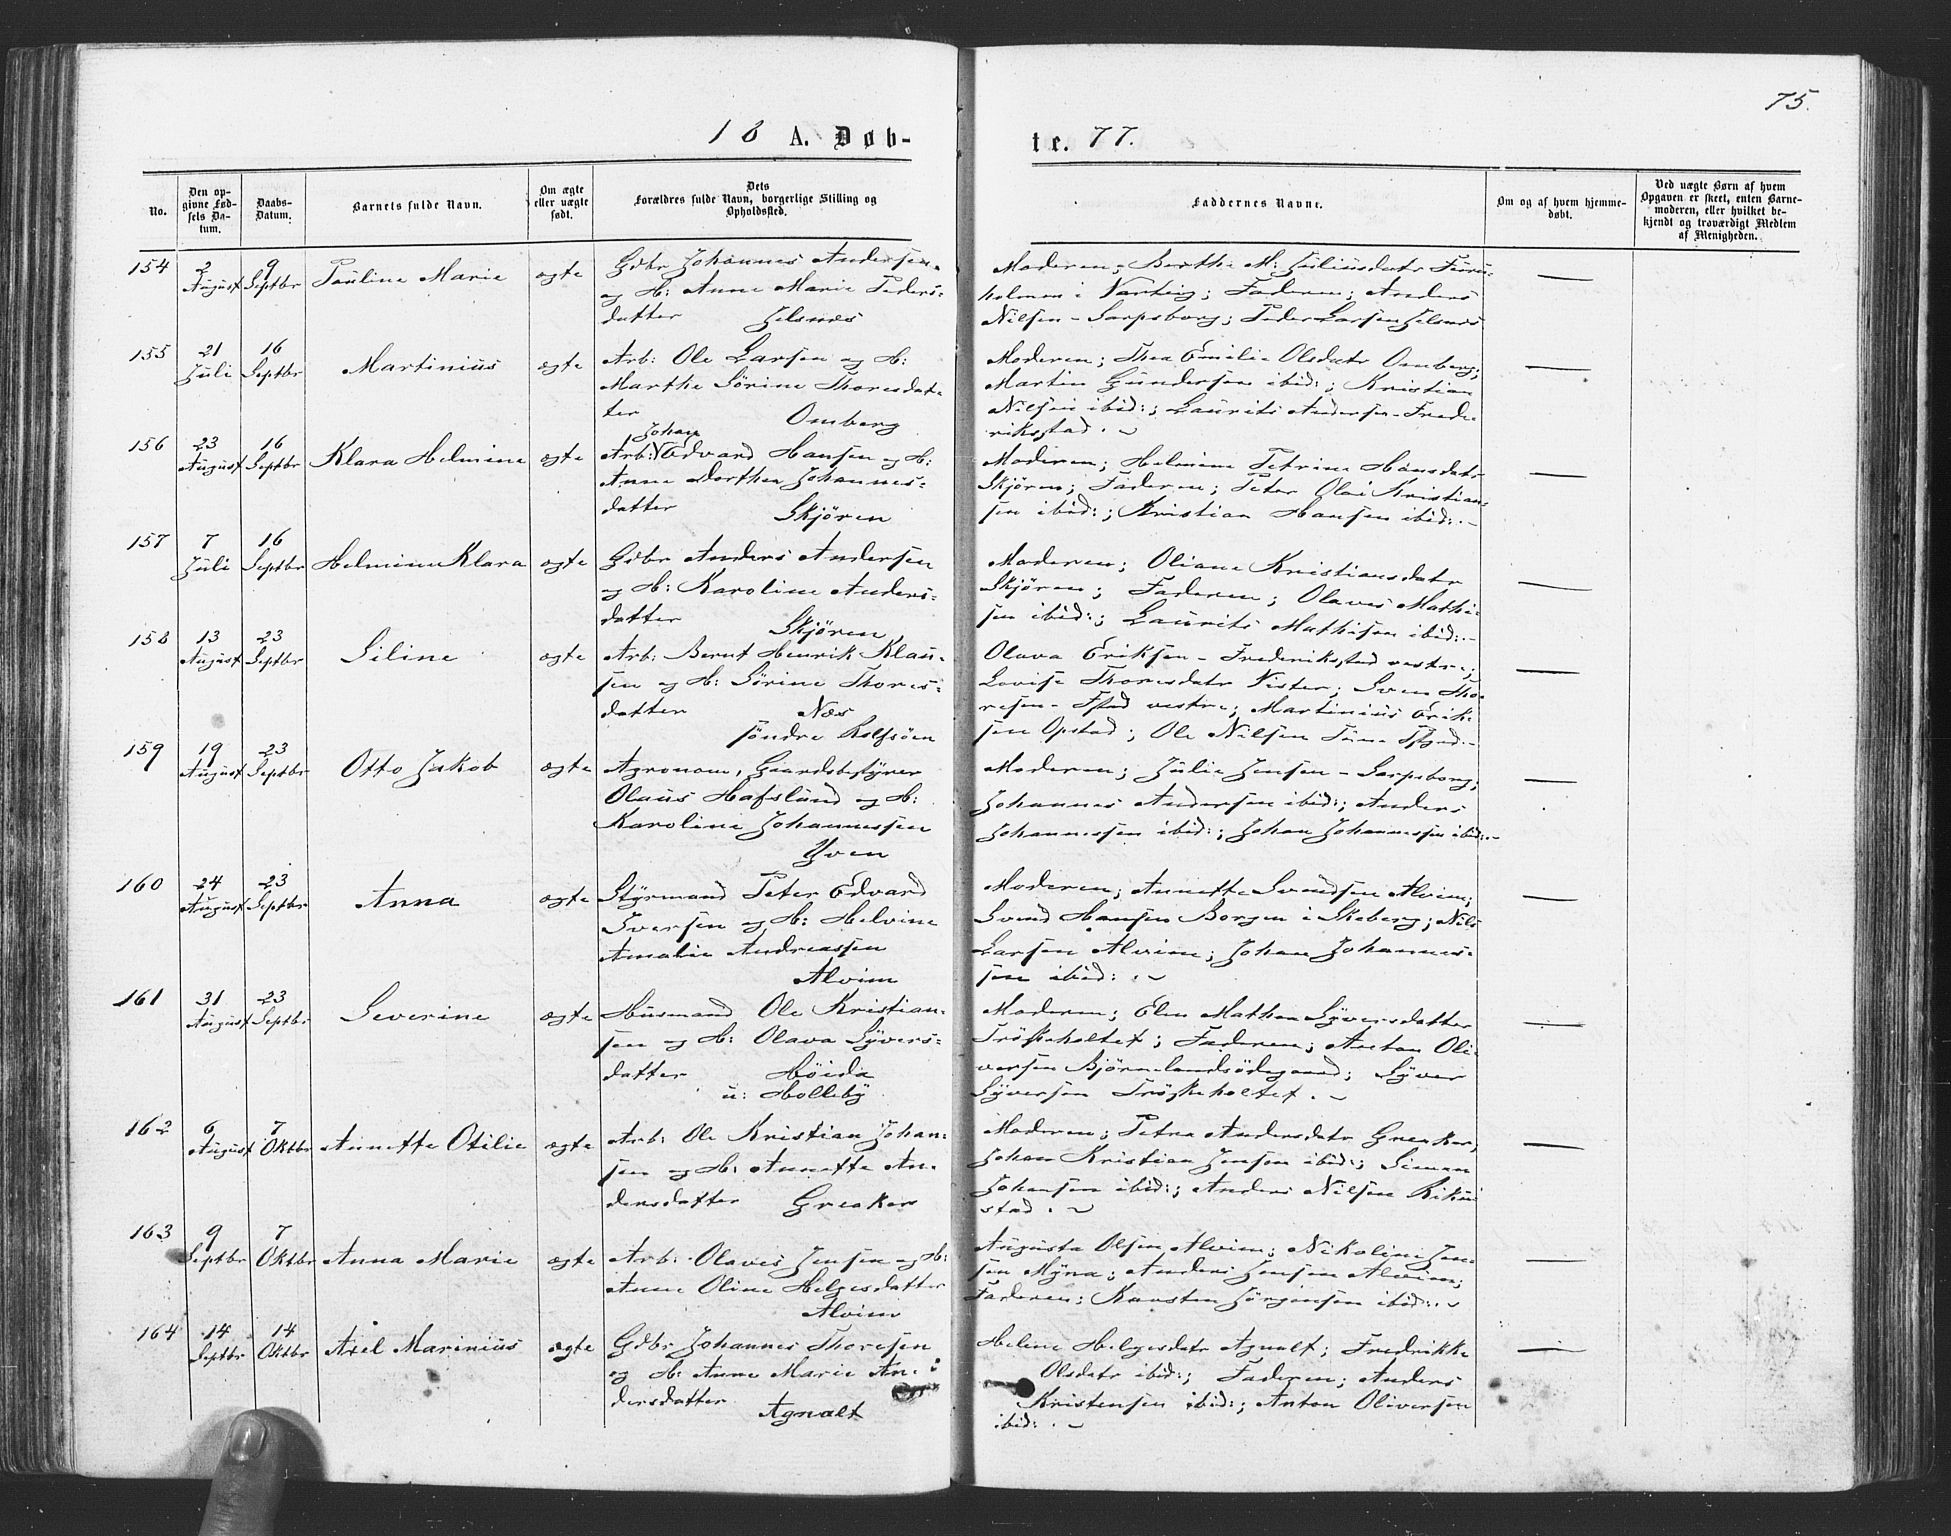 75.
18 A. Døb-
te. 77.
No.
Den op-
givne Fød-
sels Da-
tum.
Daabs-
Datum.
Barnets fulde Navn.
Om ægte
eller uægte
født.
Dets
Forældres fulde Navn, borgerlige Stilling og
Opholdssted.
Faddernes Navne.
Om og af hvem hjemme-
døbt.
Ved uægte Børn af hvem
Opgaven er skeet, enten Barne-
moderen, eller hvilket be-
kjendt og troværdigt Medlem
af Menigheden.
154
2
August
9
Septbr
Pauline Marie
ægte
Gdbr Johannes Andersen
og H: Anne Marie Peders-
datter Jelsnes
Moderen; Berthe M: Juliusdatr Furu-
holmen i Varteig; Faderen; Anders
Nilsen - Sarpsborg; Peder Larsen Jelsnes
155
21
Juli
16
Septbr
Martinius
ægte
Arb: Ole Larsen og H:
Marthe Sörine Thoresdat-
ter Omberg
Moderen; Thea Emilie Olsdatr Omberg;
Martin Gundersen ibid:; Kristian
Nilsen ibid:; Laurits Andersen - Frede-
rikstad.
156
23
August
16
Septbr
Klara Helmine
ægte
Johan
Arb: Edvard Hansen og H:
Anne Dorthea Johannes-
datter Skjören
Moderen; Helmine Petrine Hansdatr
Skjören; Faderen; Peter Olai Kristian-
sen ibid:; Kristian Hansen ibid:.
157
7
Juli
16
Septbr
Helmine Klara
ægte
Gdbr Anders Andersen
og H: Karoline Anders-
datter Skjören
Moderen; Oliane Kristiansdatr
Skjören; Faderen; Olaves Mathi-
sen ibid:; Laurits Mathisen ibid:.
158
13
August
23
Septbr
Siline
ægte
Arb: Bernt Henrik Klau-
sen og H: Sörine Thores-
datter Næs
söndre Rolfsöen
Olava Eriksen - Frederikstad vestre;
Lovise Thoresdatr Vister; Sven Tho-
resen - Fstad vestre; Martinius Erik-
sen Opstad; Ole Nilsen Tune
159
19
August
23
Septbr
Otto Jakob
ægte
Agronom, Gaardsbestyrer
Olaus Hafslund og H:
Karoline Johannessen
Yven
Moderen; Julie Jensen - Sarpsborg;
Johannes Andersen ibid:; Anders
Johannessen ibid:; Johan Johannessen ibid:.
160
24
August
23
Septbr
Anna
ægte
Styrmand Peter Edvard
Iversen og H: Helvine
Amalie Andreassen
Alvim
Moderen; Annette Svendsen Alvim;
Svend Hansen Borgen i Skeberg; Nils
Larsen Alvim; Johan Johannes-
sen ibid:.
161
31
August
23
Septbr
Severine
ægte
Husmand Ole Kristian-
sen og H: Olava Syvers-
datter Höida
u: Holleby
Moderen; Elen Mathea Syversdatter
Tröskeholtet; Faderen; Anton Oli-
versen Björnelandsödegaard; Syver
Syversen Tröskeholtet.
162
6
August
7
Oktbr
Annette Otilie
ægte
Arb: Ole Kristian Johan-
sen og H: Annette An-
dersdatter Greaker
Moderen; Petra Andersdatr Greaker;
Johan Kristian Jensen ibid:; Simen
Johansen ibid:; Anders Nilsen Riku-
stad.
163
9
Septbr
7
Oktbr
Anna Marie
ægte
Arb: Olaves Jensen og H:
Anne Oline Helgesdatter
Alvim
Augusta Olsen Alvim; Nikoline Jen-
sen Myra; Anders Jensen Alvim;
Faderen; Karsten Jörgensen ibid:.
164
14
Septbr
14
Oktbr
Axel Marinius
ægte
Gdbr Johannes Thoresen
og H: Anne Marie An-
dersdatter
Agnalt
Helene Helgesdatr Agnalt; Fredrikke
Olsdatr ibid:; Faderen; Anders
Kristensen ibid:; Anton Oliversen
ibid:.